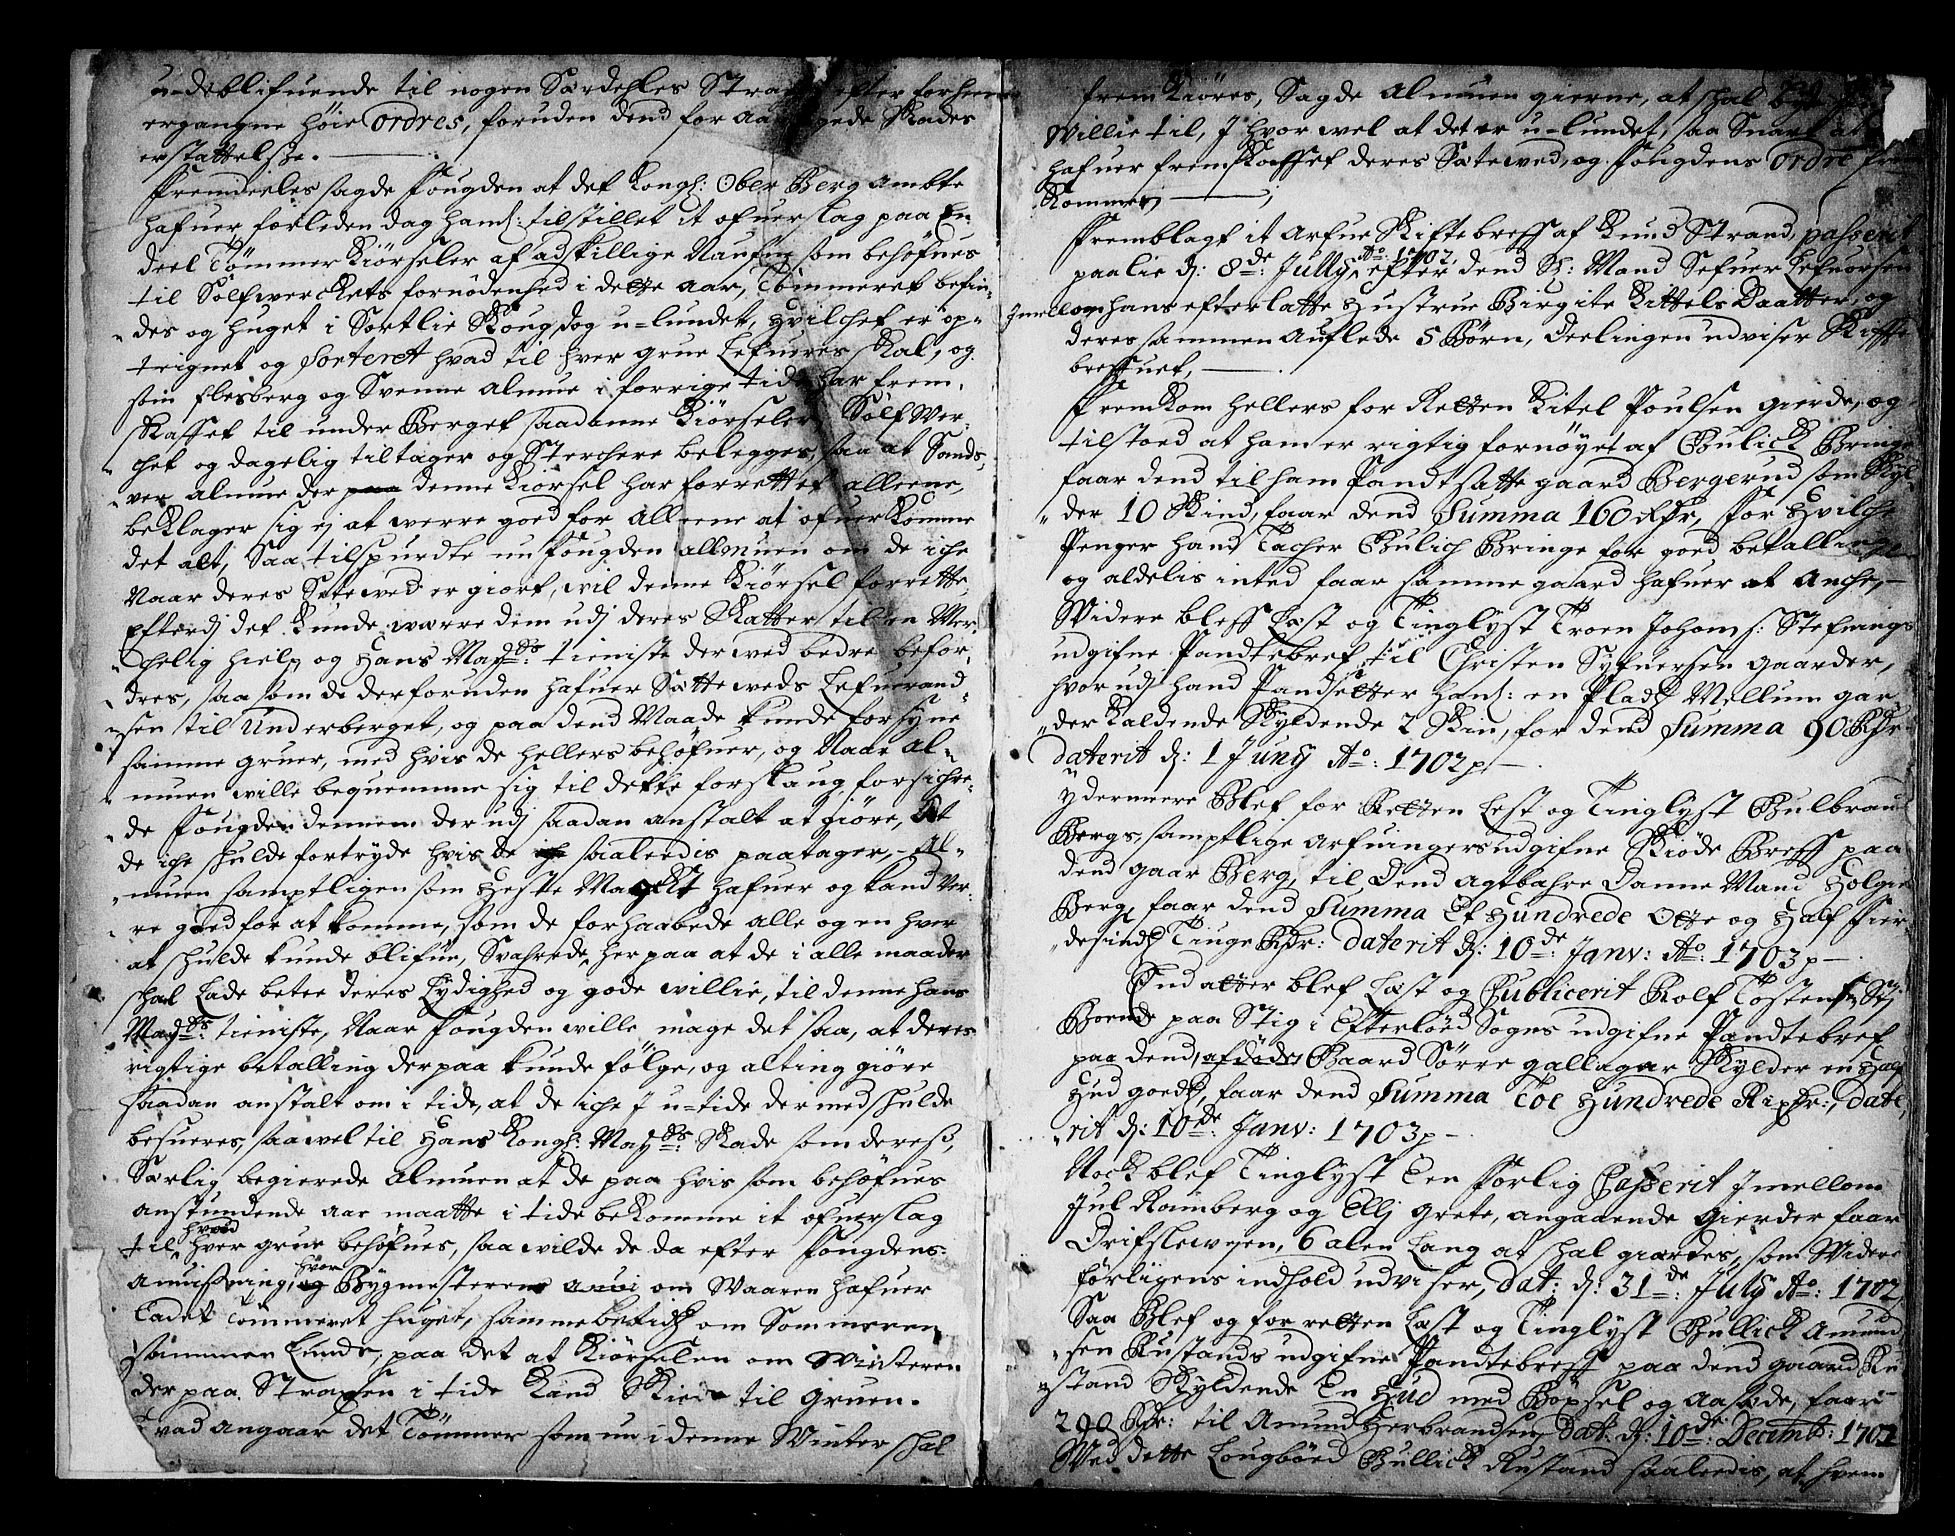 u-deblifuende til nogen Særdehles Straf efter forhen
ergangne høie ordres, foruden dend for aarsagede Skades
erstattelsse.
Fremdeeles sagde Fougden at det Kongl: Ober Berg Ambte
hafuer forleden dag hanl: tilstillet it ofuerslag paa En
deel Tømmer Kiørseler af adskillige Naufne som behøfues
til Sølfwerckets fornødenhed i dette aar, Tømmeret befin-
des og huget i Sortlie Skoug dog u-lundet, hvilchet er op-
teignet og Sorteret hvad til hver grue Lefueres skal, og
som Flesberg og Svenne almue i forrige tide har frem-
skaffet til under Berget saadanne Kiørseler, Sølf Wer-
chet og dagelig tiltager og Sterchere belegges, saa at Sands-
ver almue der paa denne Kiørsel har forrettet alleene,
beklager sig ej at werre goed for alleene at ofuerkomme
det alt, Saa tilspurdte nu Fougden allmuen om de iche
Naar deres Sætewed er giort, wil denne Kiørsel forrette,
Efterdj det kunde warre dem udj deres Skatter til en Mer-
chelig hielp og Hans Mayts: tieniste derwed bedre befor-
dres, saa som de derforuden hafuer Sætteweds Lefuerand-
sen til Underberget, og paa dend Maade kunde forsyne
samme gruer, med hvis de hellers behøfuer, og Naar al-
muen wille bequemme sig til dette forslaug, forsichre-
de Fougden dennem der udj saadan anstalt at giøre, at
de iche skulde fortryde hvis de saaleedis paatager, - Al-
muen samptligen som Heste Magt hafuer og kand Ver-
re goed for at komme, som de forhaabede alle og en hver
at skulde kunde blifue, Svahrede her paa at de i alle maader
skal Lade betee deres Lydighed og gode willie, til denne hans
Mayts: tieniste, Naar Fougden wille mage det saa, at deres
rigtige betalling derpaa kunde følge, og alting giøre
saadan anstalt om i tide, at de iche J u-tide dermed skulde
besueres, saa wel til Hans Kongl: Mayts: Skade som deress,
Særlig begierede almuen at de paa hvis som behøfues
anstundende aar maatte i tide bekomme it ofuerslag
hvad
til hver grue behøfues, saa wilde de da efter Fougdens
hvor
anuissning, og Bygmesteren anvi om Waaren hafuer
Ladet Tømmeret huget, sammebetidl om Sommeren
sammen Lunde, paa det at Kiørselen om Winteren
der paa Straxen i tide kand Skiee til gruen.
vad angaar det Tømmer som nu i denne Winter skal
frem Kiøres, Sagde almuen gierne, at skal
Willie til, J hvor wel at det er u-lundet, saa Snart at
hafuer fremskaffet deres Sætewed, og Fougdens ordre
Kommer
Fremblagt it Arfue Skiftebreff af Knud Strand, passerit
Ao: 1702
paa lie d: 8de: July, efter dend Sl: Mand Sefuer Lefuorsen
Jmellom hans efterlatte Hustrue Birgite Kittels Daatter, og
deres sammen Auflede 5 Børn, Deelingen udviser Skifte
breffuet,
Fremkom hellers for Retten Kitel Poulsen gierde, og
tilstoed at ham er rigtig fornøyet af Gulick Bringe
faar dend til ham Pandtsatte gaard Bergerud som Skyl-
der 10 Skind, faar dend Summa 160 Rdr, for Hvilche
Penger hand Tacher Gulich Bringe for goed betalling
og aldelis inted faar samme gaard hafuer at Anche,
Widere bleff Læst og Tinglyst Troen Johans: Stefnings
udgifne Pandtebref, til Christen Syfuersen gaarder,
hvor udj hand Pandsetter hanl: en Pladz Mellum gar
der kaldende Skyldende 2 Skin, for dend Summa 90 Rdr
daterit d: 1 Juny Ao: 1702
ydermeere Blef for Retten Lest og Tinglyst Gulbrand
Bergs, samptlige arfuingers udgifne Skiøde Breff paa
dend gaar Berg, til Dend Agtbahre Danne Mand Holgier
Berg, faar dend Summa Et Hundrede Otte og Half Fier-
desindz Tiuge Rdr: daterit d: 10de: Janv: Ao: 1703
End atter blef Læst og Publicerit Rolf Tostens: Stj
Boende paa Stig i Efterløed Sogns udgifne Pandtebref
paa dend, afdøde Gaard Sørre gallagar Skylder en Half
Hud goedz, faar dend Summa Toe Hundrede Rixdr:, date
rit d: 10de: Janv: 1703
Nock blef Tinglyst Een Forlig Passerit Jmellom
Jul Ramberg og Ellj Grete, angaaende gierder faar
Drifslewejen, 6 alen Lang at skal giærdes, som Widere
førligens indhold udviser, dat: d: 31de: July Ao: 1702
Saa Blef og for retten Læst og Tinglyst Gullick Amund
sen Rustands udgifne Pandtebreff paa dend gaard Ru
stand Skyldende En Hud med Bøxsel og Aasæde, faar
290 Rdr: til Amund Herbrandsen, dat: d: 10de: Decemb: 1702
Med dette Lougbøed Gullick Rustand saaleedis, at hvem